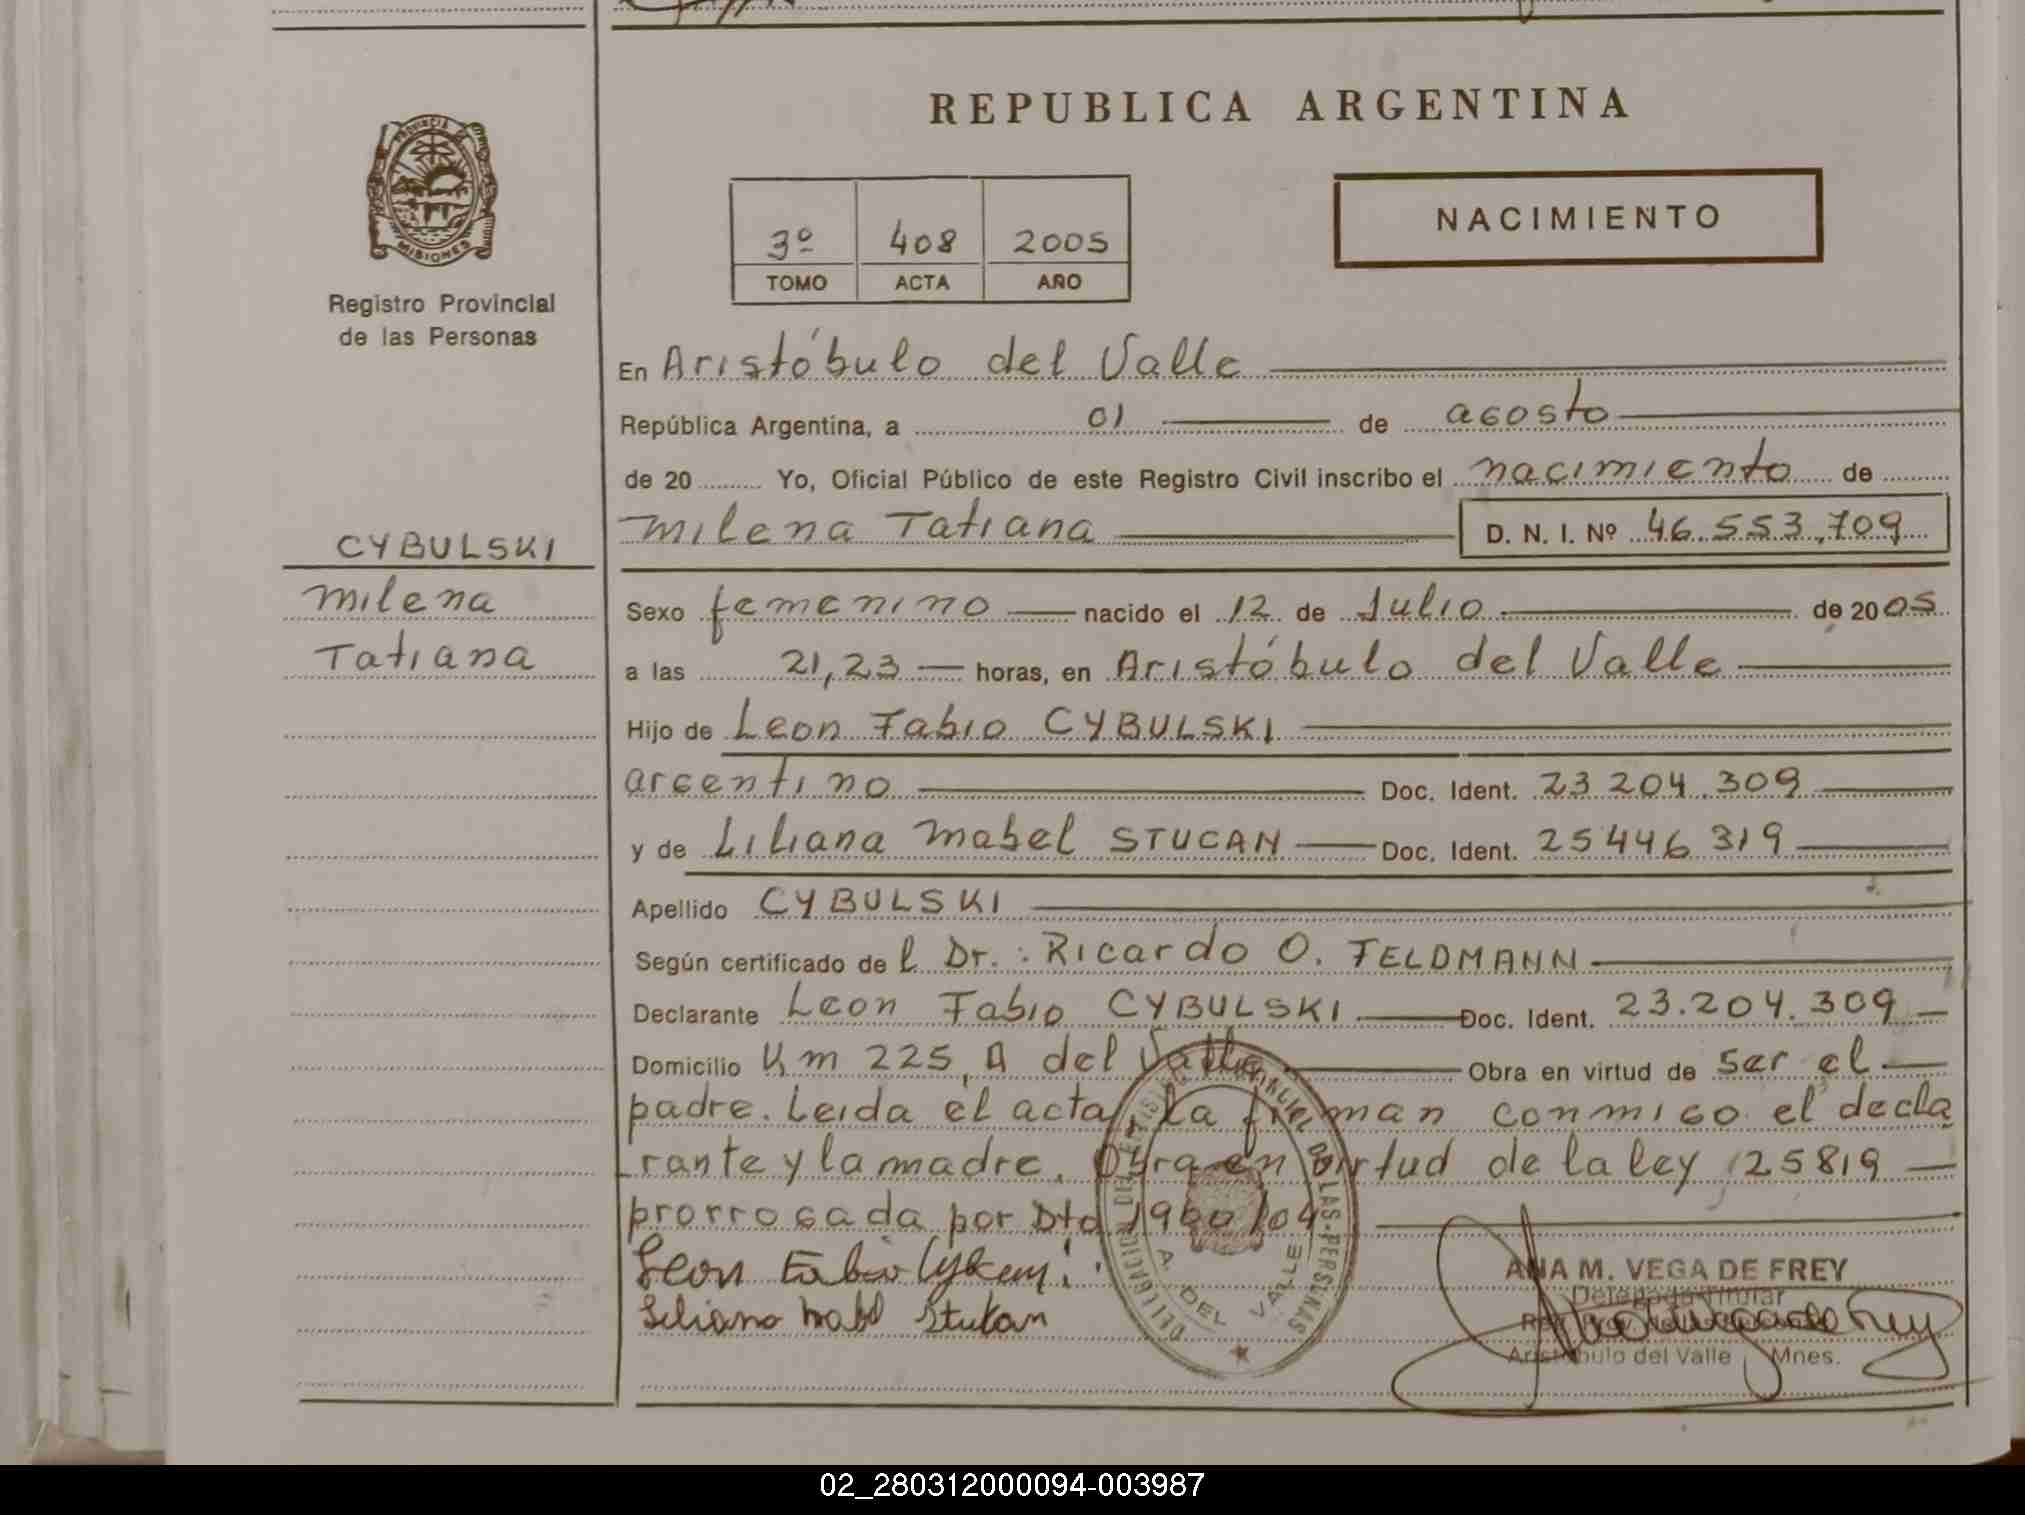 REPUBLICA ARGENTINA
PROVINCIA DE
MISIONES
Registro Provincial
de las Personas
3º 408 2005
TOMO ACTA AÑO
NACIMIENTO
En Aristóbulo del Valle
República Argentina, a 01 de agosto
de 20 Yo, Oficial Público de este Registro Civil inscribo el nacimiento de
CYBULSKI
milena
Tatiana
milena Tatiana D. N. I. Nº 46.553.709
Sexo femenino nacido el 12 de Julio de 2005
a las 21,23 horas, en Aristóbulo del Valle
Hijo de Leon Fabio CYBULSKI
argentino Doc. Ident. 23 204.309
y de Liliana mabel STUCAN Doc. Ident. 25446 319
Apellido CYBULSKI
Según certificado de l Dr.: Ricardo O. FELDMANN
Declarante Leon Fabio CYBULSKI Doc. Ident. 23.204.309
Domicilio Km 225, A del Valle Obra en virtud de ser el
padre. Leida el acta, la firman conmigo el decla
rante y la madre. Obra en virtud de la ley 25819
prorrogada por Dto 1960/04
Leon Fabio
Liliana Mabel Stukan
DELEGACION DEL REGISTRO PROVINCIAL DE LAS PERSONAS
A. DEL VALLE
ANA M. VEGA DE FREY
Delegada Titular
Aristóbulo del Valle Mnes.
02_280312000094-003987